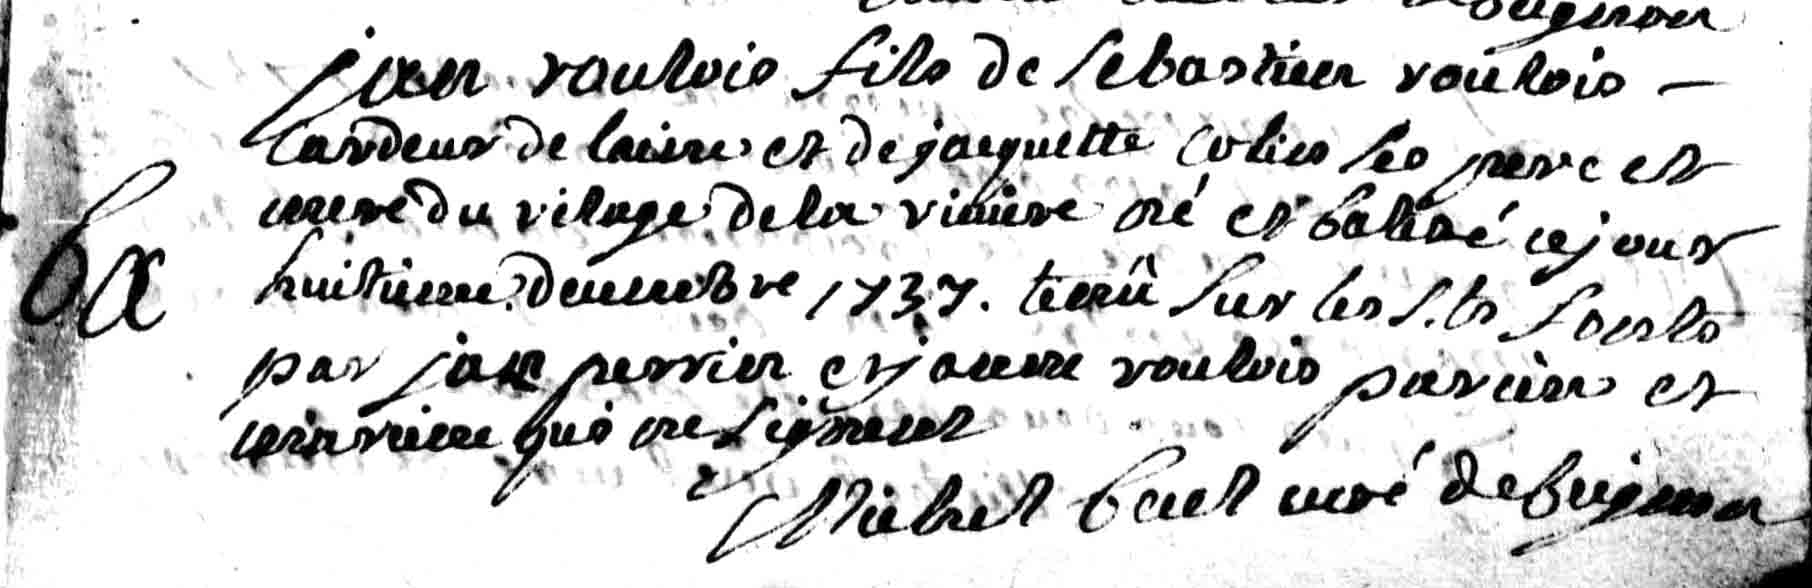 jean voulois fils de sebastien voulois -
cardeur de laine et de jacquette colin ses pere et
mere du vilage de la riviere né et batisé ce jour
Ba
huitieme decembre 1737. tenû sur les s.ts fonts
par jean perrier et jeanne voulois parein et
mareine qui ne signent
Michel curé de